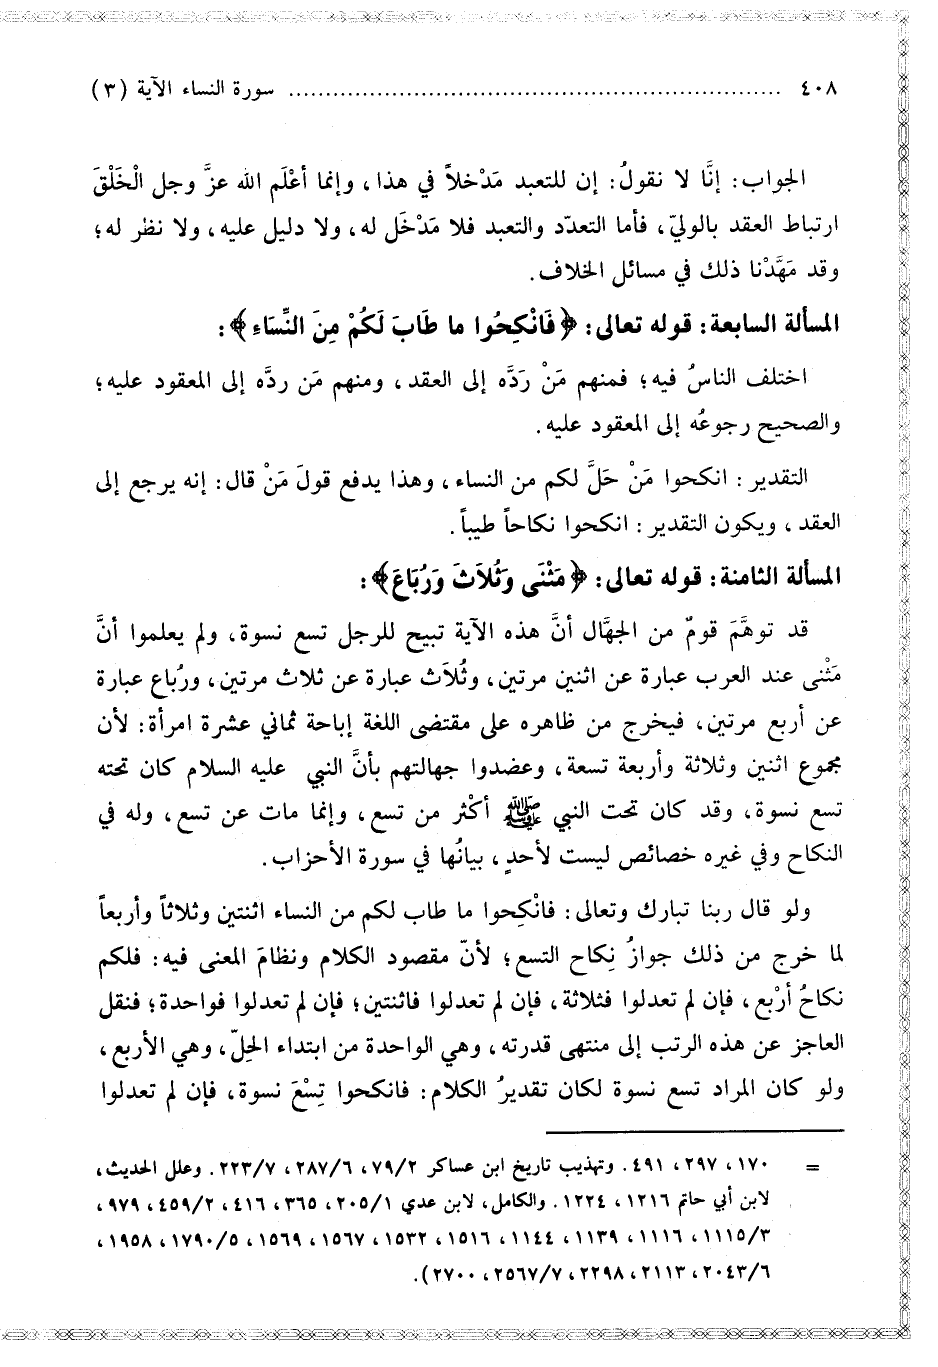 ٤٠٨ ........................................................ سورة النساء الآية (٣)
الجواب: إنَّا لا نقولُ: إن للتعبد مَدْخلاً في هذا، وإنما أعْلَم الله عزَّ وجل الْخَلْقَ
ارتباط العقد بالوليّ، فأما التعدّد والتعبد فلا مَدْخَل له، ولا دليل عليه، ولا نظر له؛
وقد مَهَّدْنا ذلك في مسائل الخلاف.
المسألة السابعة: قوله تعالى: ﴿فَانْكِحُوا ما طَابَ لَكُمْ مِنَ النِّسَاءِ﴾:
اختلف الناسُ فيه؛ فمنهم مَنْ رَدَّه إلى العقد، ومنهم مَن ردَّه إلى المعقود عليه؛
والصحيح رجوعُه إلى المعقود عليه.
التقدير: انكحوا مَنْ حَلَّ لكم من النساء، وهذا يدفع قولَ مَنْ قال: إنه يرجع إلى
العقد، ويكون التقدير: انكحوا نكاحاً طيباً.
المسألة الثامنة: قوله تعالى: ﴿مَثْنَى وَثُلاَثَ وَرُبَاعَ﴾:
قد توهَّمَ قومٌ من الجهَّال أنَّ هذه الآية تبيح للرجل تسع نسوة، ولم يعلموا أنَّ
مَثْنى عند العرب عبارة عن اثنين مرتين، وثُلاَث عبارة عن ثلاث مرتين، ورُباع عبارة
عن أربع مرتين، فيخرج من ظاهره على مقتضى اللغة إباحة ثماني عشرة امرأة: لأن
مجموع اثنين وثلاثة وأربعة تسعة، وعضدوا جهالتهم بأنَّ النبي عليه السلام كان تحته
تسع نسوة، وقد كان تحت النبي ﷺ أكْثر من تسع، وإنما مات عن تسع، وله في
النكاح وفي غيره خصائص ليست لأحدٍ، بيانُها في سورة الأحزاب.
ولو قال ربنا تبارك وتعالى: فانْكِحوا ما طاب لكم من النساء اثنتين وثلاثاً وأربعاً
لما خرج من ذلك جوازُ نِكاح التسع؛ لأنّ مقصود الكلام ونظامَ المعنى فيه: فلكم
نكاحُ أرْبع، فإن لم تعدلوا فثلاثة، فإن لم تعدلوا فاثنتين؛ فإن لم تعدلوا فواحدة؛ فنقل
العاجز عن هذه الرتب إلى منتهى قدرته، وهي الواحدة من ابتداء الحِلّ، وهي الأربع،
ولو كان المراد تسع نسوة لكان تقديرُ الكلام: فانكحوا تِسْعَ نسوة، فإن لم تعدلوا
= ١٧٠، ٢٩٧، ٤٩١. وتهذيب تاريخ ابن عساكر ٧٩/٢، ٢٨٧/٦، ٢٢٣/٧. وعلل الحديث،
لابن أبي حاتم ١٢١٦، ١٢٢٤. والكامل، لابن عدي ٢٠٥/١، ٣٦٥، ٤١٦، ٤٥٩/٢، ٩٧٩،
١١١٥/٣، ١١١٦، ١١٣٩، ١١٤٤، ١٥١٦، ١٥٣٢، ١٥٦٧، ١٥٦٩، ١٧٩٠/٥، ١٩٥٨،
٢٠٤٣/٦، ٢١١٣، ٢٢٩٨، ٢٥٦٧/٧، ٢٧٠٠).